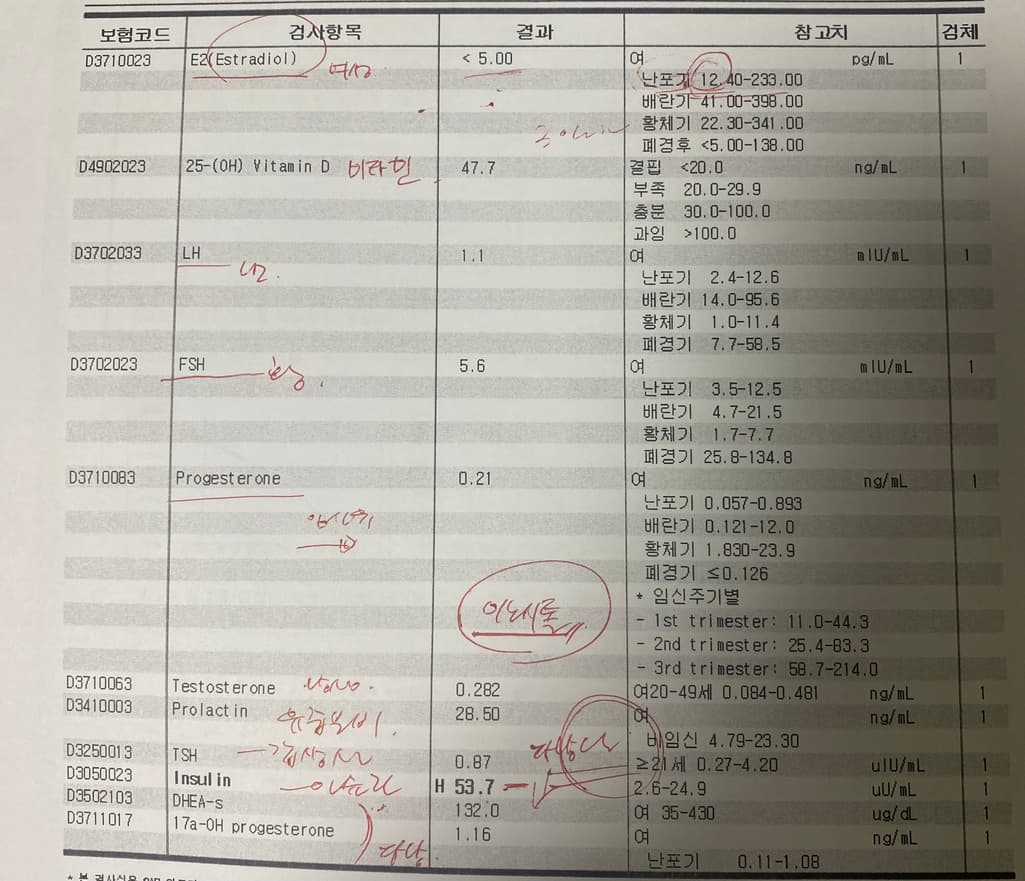 보험코드 검사항목 결과 참고치 검체
D3710023 E2(Estradiol) 여성 < 5.00 여 pg/mL 1
난포기 12.40-233.00
배란기 41.00-398.00
황체기 22.30-341.00
폐경후 <5.00-138.00
D4902023 25-(OH) Vitamin D 비타민 47.7 결핍 <20.0 ng/mL 1
부족 20.0-29.9
충분 30.0-100.0
과잉 >100.0
D3702033 LH 1.1 여 mIU/mL 1
난포기 2.4-12.6
배란기 14.0-95.6
황체기 1.0-11.4
폐경기 7.7-58.5
D3702023 FSH 5.6 여 mIU/mL 1
난포기 3.5-12.5
배란기 4.7-21.5
황체기 1.7-7.7
폐경기 25.8-134.8
D3710083 Progesterone 0.21 여 ng/mL 1
난포기 0.057-0.893
배란기 0.121-12.0
황체기 1.830-23.9
폐경기 ≤0.126
* 임신주기별
이노시톨
- 1st trimester: 11.0-44.3
- 2nd trimester: 25.4-83.3
- 3rd trimester: 58.7-214.0
D3710063 Testosterone 남성 0.282 여20-49세 0.084-0.481 ng/mL 1
D3410003 Prolactin 유즙분비 28.50 여 ng/mL 1
비임신 4.79-23.30
다낭
D3250013 TSH 갑상선 0.87 ≥21세 0.27-4.20 uIU/mL 1
D3050023 Insulin 인슐린 H 53.7 2.6-24.9 uU/mL 1
D3502103 DHEA-s 132.0 여 35-430 ug/dL 1
D3711017 17a-OH progesterone 1.16 여 ng/mL 1
다낭
난포기 0.11-1.08